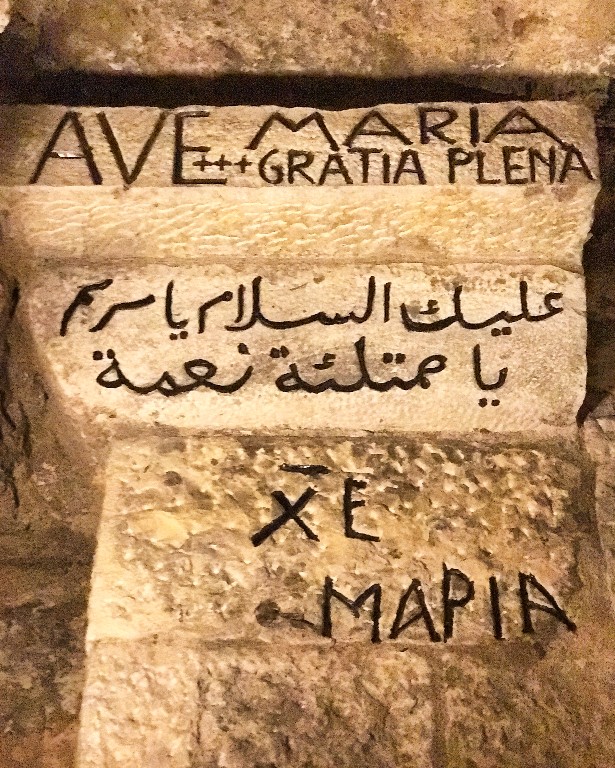 AVE MARIA
+++ GRATIA PLENA
عليك السلام يا مريم
يا ممتلئة نعمة
X̅E
ΜΑΡΙΑ